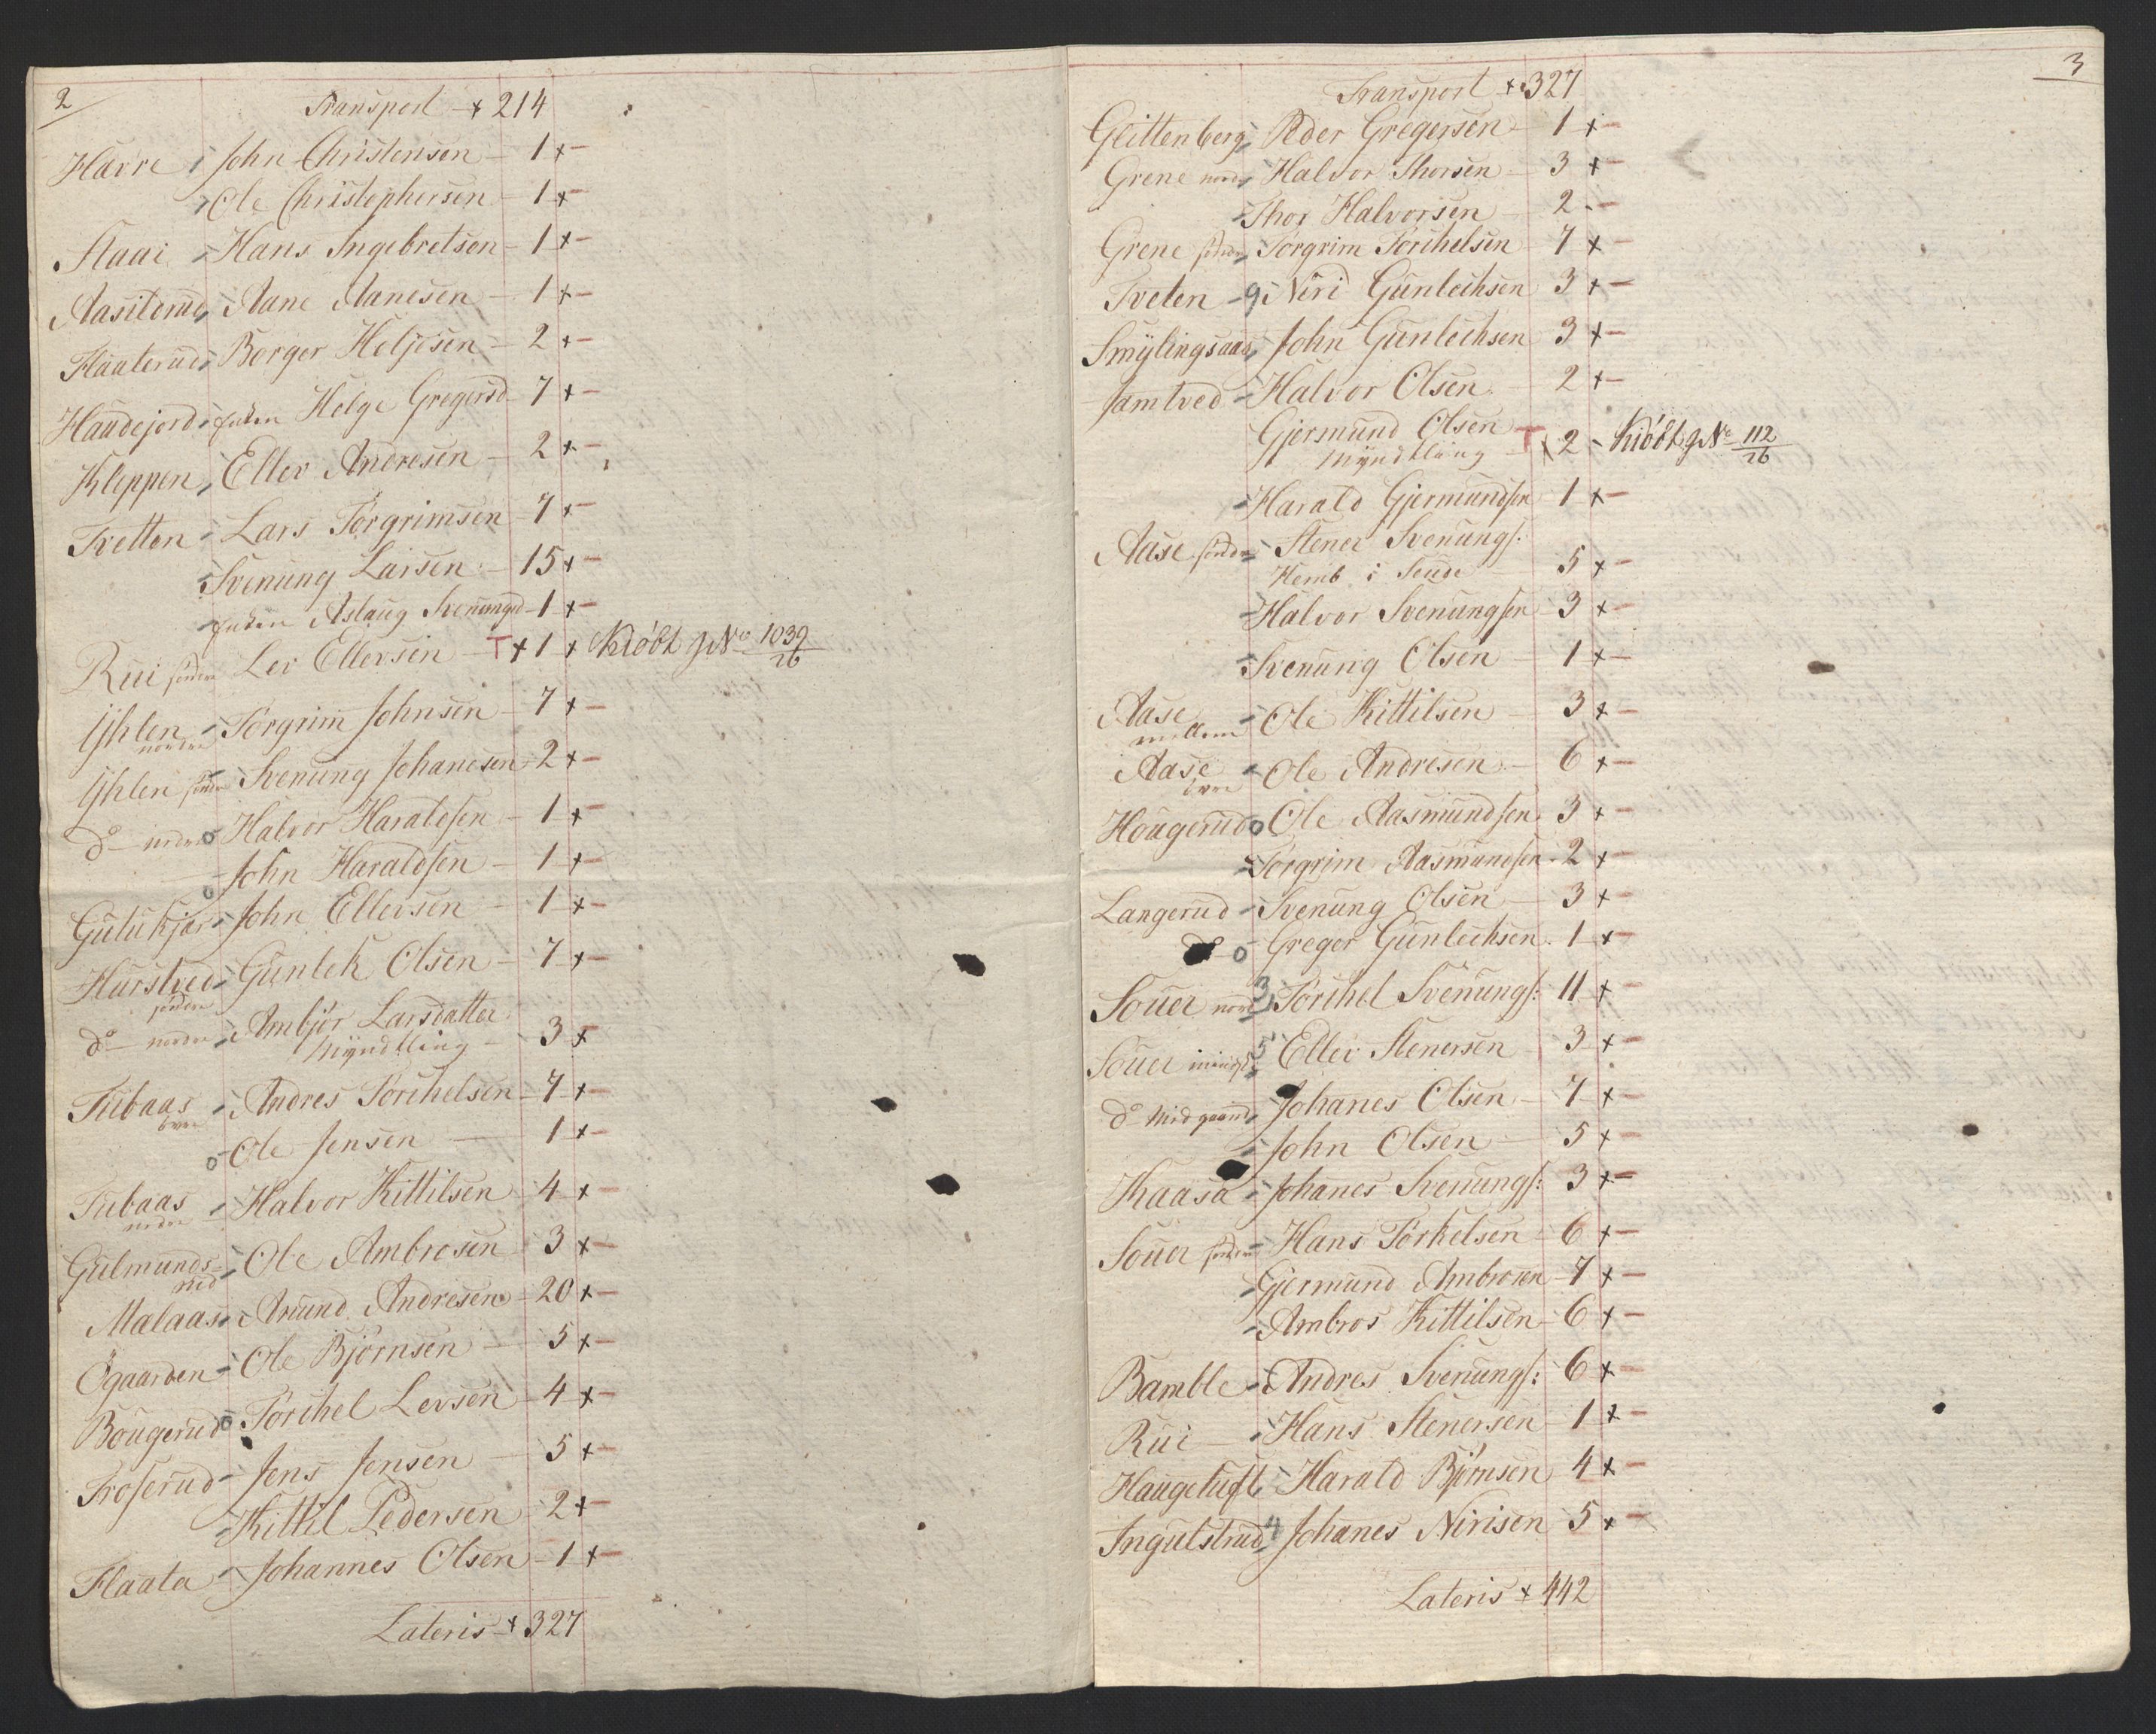 2
Transport x 214
Havre John Christensen 1 x
Ole Christophersen 1 x
Staai Hans Ingebretsen 1 x
Aasiterud Aane Aanesen 1 x
Flaaterud Borger Heljesen 2 x
Haudejord Enken Helge Gregersd 7 x
Kleppen Ellev Andresen 2 x
Tvetten Lars Torgrimsen 7 x
Svenung Larsen 15 x
Enken Aslaug Svenungsd 1 x
Rui söndre Lev Ellevsen T x 1 x Kiöbt No 1039/26
Yhlen nordre Torgrim Johnsen 7 x
Yhlen söndre Svenung Johanesen 2 x
do nedre o Halvor Haraldsen 1 x
o John Haraldsen 1 x
Gulukjær John Ellevsen 1 x
Hurstved söndre Gunlek Olsen 7 x
do nordre Ambjör Larsdatter
Myndtling 3 x
Tubaas övre Andres Torchelsen 7 x
o Ole Jensen 1 x
Tubaas nedre Halvor Kittilsen 4 x
Gulmunds=
rud Ole Ambrosen 3 x
Malaas Amund Andresen 20 x
Ögaarden Ole Björnsen 5 x
Bougerud o Torchel Levsen 4 x
Troserud Jens Jensen 5 x
Kittil Pedersen 2 x
Flaata Johannes Olsen 1 x
Lateris x 327
3
Transport x 327
Glittenberg Peder Gregersen 1 x
Grene nord Halvor Thorsen 3 x
Thor Halvorsen 2
Grene söndre Torgrim Torchelsen 7 x
Tveten 9 Niri Gunlechsen 3 x
Smylingsaas John Gunlechsen 3 x
Jamtved Halvor Olsen 2 x
Gjermund Olsen
Myndtling T x 2 Kiöbt No 112/26
Harald Gjermundsen 1 x
Aase söndre Stener Svenungs:
Hemb i Seude 5 x
Halvor Svenungsen 3 x
Svenung Olsen 1 x
Aase mellem Ole Kittilsen 3 x
Aase övre Ole Andresen 6 x
Hougerud o Ole Aasmundsen 3 x
Torgrim Aasmundsen 2 x
Langerud Svenung Olsen 3 x
do o Greger Gunlechsen 1 x
Souer nord 3 Torchel Svenungs: 11 x
Souer 5 Ellev Stenersen 3 x
do Midgaard Johanes Olsen 7 x
John Olsen 5 x
Kaasa Johanes Svenungs: 3 x
Souer söndre Hans Torkelsen 6 x
Gjermund Ambrosen 7 x
Ambros Kittilsen 6 x
Bamble Andres Svenungs: 6 x
Rui Hans Stenersen 1 x
Haugetuft Harald Björnsen 4 x
Ingulstrud 4 Johanes Nirisen 5 x
Lateris x 442